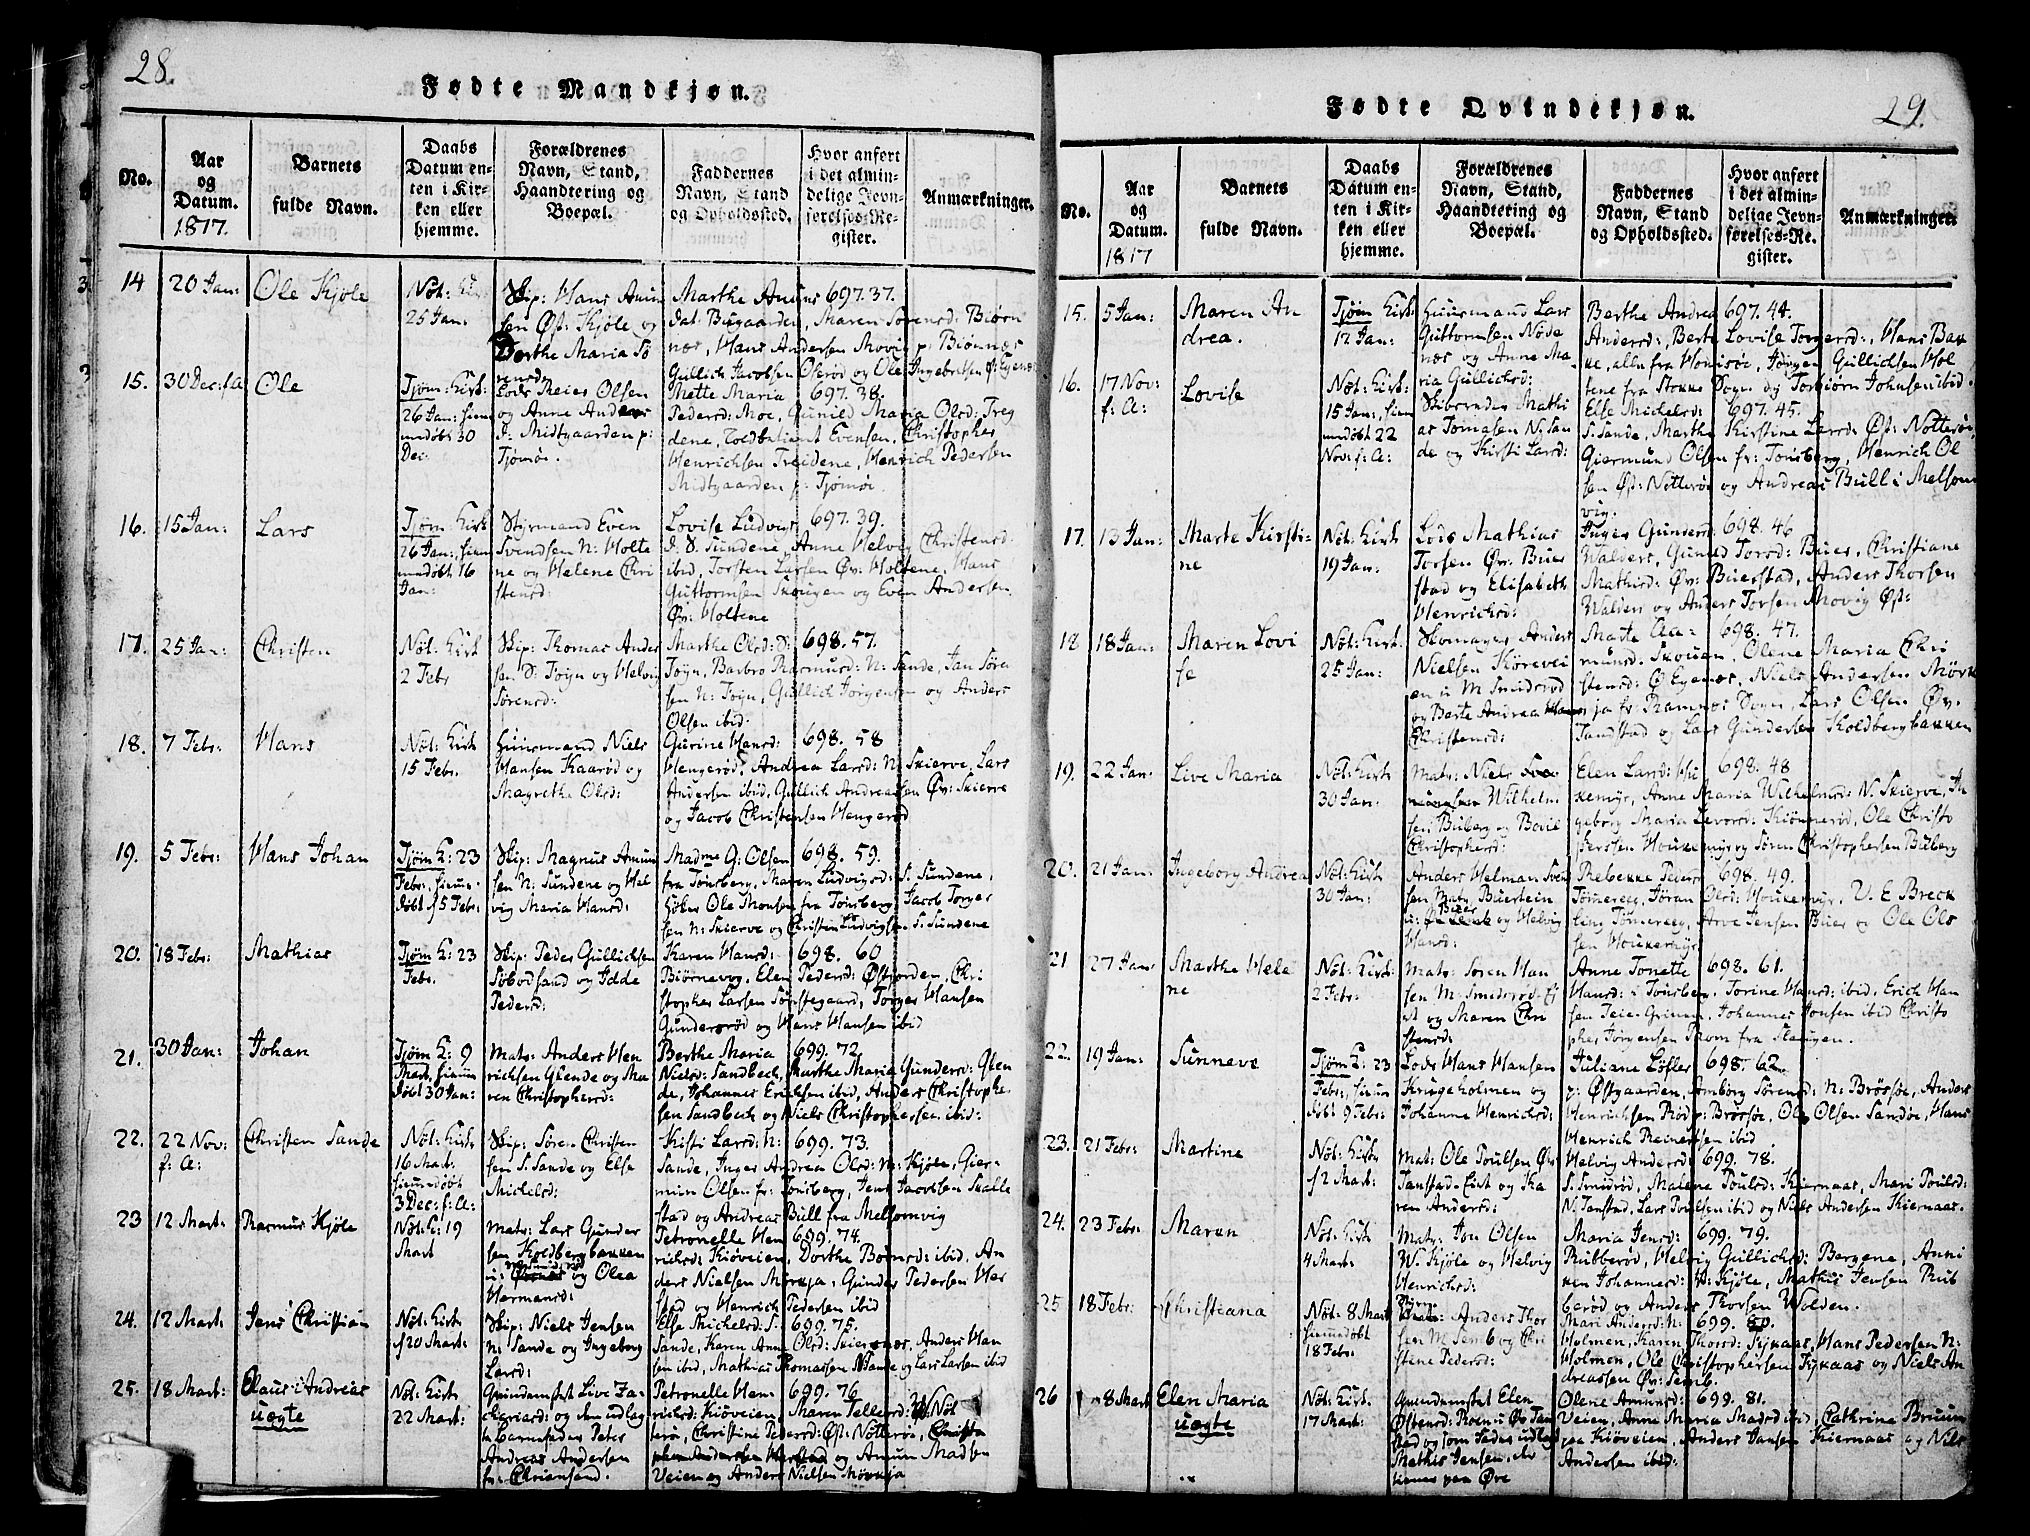 28.
Fødte Mandkjøn.
No.
Aar og Datum. 1817.
Barnets fulde Navn.
Daabs Datum enten i Kirken eller hjemme.
Forældrenes Navn, Stand, Haandtering og Boepæl.
Faddernes Navn, Stand og Opholdssted.
Hvor anført i det almindelige Jevnførelses-Register.
Anmærkninger.
14
20 Jan:
Ole Kjøle
Nöt: Kirk
25 Jan:
Skip: Hans Amun
sen Øst: Kjöle og
Dorthe Maria Sö
rensd:
Marthe Amuns 697.37.
dat: Bugaarden, Maren Sörensd: Biörn
nes, Hans Andersen Movig p: Biönnes
Gullich Jacobsen Ökeröd og Ole Ingebretsen Ø: Egenes
15.
30 Dec: f: A:
Ole
Tjöm: Kirk:
26 Jan: hiem
medöbt 30
Dec:
Lods Reier Olsen
og Anne Anders
d: Midtgaarden p:
Tjömöe.
Mette Maria 697.38.
Pedersd: Moe, Gunild Maria Olsd: Treg
dene, Evensen, Christopher
Henrichsen Treidene, Henrich Pedersen
Midtgaarden p: Tjömöe.
16.
15 Jan:
Lars
Tjöm: Kirk
26 Jan:, hiem
medöbt 16
Jan:
Styrmand Even
Svendsen N: Holte
ne og Helene Chri
stensd:
Lovise Ludvigs 697.39.
d: S. Sundene, Anne Helvig Christensd:
ibid, Torsten Larsen Øv: Holtene, Hans
Guttormsen Skougen og Even Andersen
Øv: Holtene
17.
25 Jan:
Christen
Nöt: Kirk
2 Febr
Skip: Thomas Anders
sen S: Töjen og Helvig
Sörensd:
Marthe Olsd: S: 698.57.
Töjen, Barbro Rasmusd: N: Sande, Jan Söra
sen N: Töjen, Gullich Jörgensen og Anders
Olsen ibid.
18.
7 Febr:
Hans
Nöt: Kirk
15 Febr.
Huusmand Niels
Hansen Kaaröd og
Magrethe Olsd:
Gurine Hansd: 698.58
Hengeröd, Andrea Larsd: N: Skierve, Lars
Andersen ibid, Gullich Andreassen Øv: Skierve
og Jacob Christensen Hengeröd
19.
5 Febr:
Hans Johan
Tjöm K: 23
Febr:, hiem
döbt f 5 Febr:
Skip: Magnus Amun
sen N: Sundene og Hel
vig Maria Hansd:
Madme G: Olsen 698.59.
fra Tönsberg, Maren Ludvigsd: S. Sundene,
Höker Ole Monsen fra Tönsberg, Jacob Torger
sen N: Skierve og Christen Ludvigsen S: Sundene
20.
18 Febr:
Mathias
Tjöm K: 23
Febr.
Skip: Peder Gullichsen
Söbodsand og Idde
Pedersd:
Karen Hansd: 698.60
Biörnevog, Elen Pedersd: Østjorden, Chri
stopher Larsen Söpstegaard, Torger Hansen
Gunderöröd og Hans Hansen ibid
21.
30 Jan:
Johan
Tjöm K: 9
Mart, hiem
döbt 30 Jan:
Mat: Anders Hen
richsen Glende og Ma
ren Christophersd:
Berthe Maria 699.72
Nielsd: Sandbeck, Marthe Maria Gundersd: Glen
de, Johannes Ericksen ibid, Anders Christophe
sen Sandbeck og Niels Christophersen ibid:
22.
22 Nov:
f: A:
Christen Sande
Nöt: Kirk
16 Mart:
hiemedöbt
3 Dec: f: A:
Skip: Sören Christen
sen S. Sande og Else
Michelsd:
Kisti Larsd: N: 699.73.
Sande, Inger Andrea Olsd: M: Kjöle, Gier
mun Olsen fr: Tönsberg, Jens Jacobsen Skalle
stad og Andreas Bull fra Melsomvig
23
12 Mart:
Rasmus Kjöle
Nöt: K: 19
Mart
Mat: Lars Gunder
sen Koldbergbakken
og Olea
Hermansd:
Petronelle Hen 699.74.
richsd: Kiöveien, Dorthe Börnsd: ibid, An
ders Nielsen Mövkja, Gunder Pedersen Her
stad og Henrich Pedersen ibid
24.
12 Mart:
Jens Christian
Nöt: Kirk
f20 Mart:
Skip: Niels Jensen
N: Sande og Ingeborg
Larsd:
Else Michelsd: S: 699.75.
Sande, Karen Anna Olsd: Skiernes, Anders Han
sen ibid, Mathias Thomassen N: Sande og Lars Larsen ibid
25.
18 Mart:
Claus Andreas
uegte
Nöt: Kirk
22 Mart:
Qvindemsket Live Za
chariasd: og den udlag
te barnefader Peter
Andreas Andersen
fr: Chriansand.
Petronelle Hen 699.76
richsd: Kiöveien, Maren Tellefsd: Nöt
terö, Christine Pedersd: Øst: Nötteröe, Christo
pher Andersen Herstad og Amun Madsen
Veien og Anders Nielsen Mövkja
29.
Fødte Qvindekjøn.
No.
Aar og Datum. 1817
Barnets fulde Navn.
Daabs Datum enten i Kirken eller hjemme.
Forældrenes Navn, Stand, Haandtering og Boepæl.
Faddernes Navn, Stand og Opholdssted.
Hvor anført i det almindelige Jevnførelses-Register.
Anmærkninger.
15.
5 Jan:
Maren An
drea.
Tjöm Kirk:
12 Jan:
Huusmand Lars
Guttormsen Nöde
nes og Anne Ma
ria Gullichsd:
Berthe Andrea 697.44.
Andersd:, Berte Lovise Torgersd:, Hans Bak
ke, alle fra Hemsöe, Jörgen Gullichsen Hol
tene fra Stokke Sogn og Torbiörn Johnsen ibid.
16.
17 Nov:
f: A:
Lovise
Nöt: Kirk:
15 Jan:, hiem
medöbt 22
Nov: f: A:
Skibsreder Mathi
as Tomasen N: San
de og Kirsti Larsd:
Else Michelsd: 697.45.
S. Sande, Marthe Kirstine Larsd: Øst: Nötteröe,
Giermund Olsen fr: Tönsberg, Henrich Ol
sen Øst: Nötteröe og Andreas Bull i Melsom
vig.
17.
13 Jan:
Marte Kirsti-
ne
Nöt: Kirk
19 Jan:
Lods Mathias
Torsen Øv: Buer
stad og Elisabeth
Henrichsd:
Inger Gundersd: 698.46
Walders, Gunild Torsd: Buer, Christiane
Mathisd: Øv: Buerstad, Anders Thorsen
Walders og Anders Torsen Movig Øst:
18
18 Jan:
Maren Lovi
se
Nöt: Kirk:
25 Jan:
Skomager Anders
Nielsen Körevei
en u: M Smidsröd
og Berte Andrea
Christensd:
Marte Aa- 698.47.
munsd. Skouen, Olene Maria Chri
stensd: Ø Egenes, Niels Andersen Mövk
ja fr: Ramnes Sogn, Lars Olsen Øv.
Tandstad og Lars Gundersen Koldbergbakken
19.
22 Jan:
Live Maria
Nöt: Kirk
30 Jan:
Mat: Niels
Wilhelm
sen Buberg og Bovil
Christophersd:
Elen Larsd: Hu 698.48
kemyr, Anne Maria Wilhelmsd: N. Skierve, In
geborg Maria Levorsd: Kiönneröd, Ole Christo
fersen Houkemyr og Sören Christophersen Buberg
20.
21 Jan:
Ingeborg Andrea
Nöt: Kirk
30 Jan:
Anders Helman Sven
sen Mat: Buerstein
og Helvig
Hansd:
Rebekke Peders 698.49.
Tömereg, Jöran Olsd: Houkemyr, U. E Breck
ling Tömereg, Arve Jensen Buer og Ole Ols
sen Houkemyr.
21
27 Jan:
Marthe Hele
ne
Nöt: Kirk:
2 Febr:
Mat: Sören Han
sen M: Smedsröd Ei
d og Maren Chri
stensd:
Anne Tonette 698.61.
Hansd: i Tönsberg, Torine Hansd: ibid, Erich Han
sen Teie Grinen, Johannes Jonsen ibid Christo
pher Jörgensen Rom fra Slaugen.
22.
19 Jan:
Sunneve
Tjöm K: 23
Febr:, hiem
döbt 9 Febr:
Lods Hans Hansen
Krugeholmen og
Johanne Henrichsd:
Juliane Löfler 698.62
p: Østgaarden, Amborg Sörensd: N: Brösöe, Anders
Henrichsen Röd p: Brösöe, Ole Olsen Sandöe, Hans
Henrich Reinertsen ibid
23.
21 Febr:
Martine
Nöt: Kirk
f2 Mart:
Mat: Ole Poulsen Øv
Tanstad Eiet og Ka
ren Andersd:
Helvig Andersd: 699.78.
S. Smidsröd, Malene Poulsd: Kiernaas, Mari Poulsd:
N. Tanstad, Lars Poulsen ibid og Niels Andersen Kiernaas.
24.
23 Febr:
Maren
Nöt: Kirk
4 Mart:
Mat: Jon Olsen
W. Kjöle og Helvig
Henrichsd:
Maria Jensd: 699.79.
Rubberöd, Helvig Gullichsd: Bergene, Anni
ken Johannesd: W. Kjöle, Mathis Jensen Rub
beröd og Anders Thorsen Wolden.
25
18 Febr:
Christiana
Nöt: 8 Mart
hiemedöbt
18 Febr:
Anders Thor
sen M. Semb og Chri
stene Pedersd:
Mari Andersd: N: 699.80.
Holmen, Karen Thorsd: Fykaas, Hans Pedersen N:
Holmen, Ole Christophersen Fykaas og Niels An
dreassen Øv: Semb.
26
8 Mart
Elen Maria
uegte
Nöt: Kirk:
17 Mart:
Qvindemsket Elen
Östensd: Tan
stad og som Fader udlagt
Mathis Jensen,
tiener paa Øre
Olene Amunsd: 699.81.
Veien, Anne Maria Madsd ibid, Cathrine Bruun
paa Kiöveien, Anders Hansen Kiernaas og Niels
Andersen ibid: